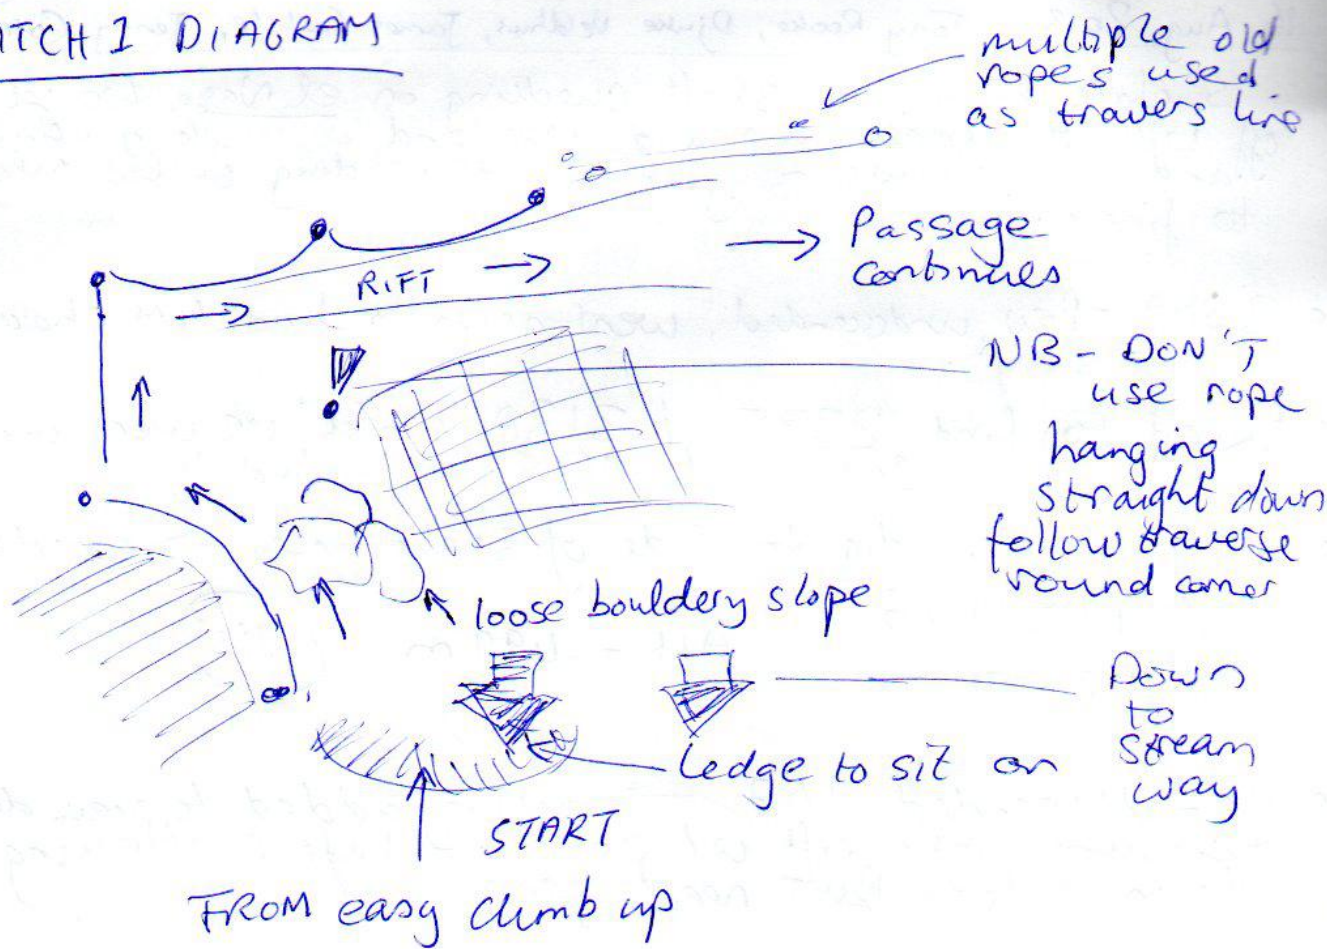 ITCH 1 DIAGRAM
multiple old
ropes used
as travers line
Passage
continues
RIFT
NB - DON'T
use rope
hanging
straight down
follow traverse
round corner
loose bouldery slope
Down
to
stream
way
Ledge to sit on
START
FROM easy climb up